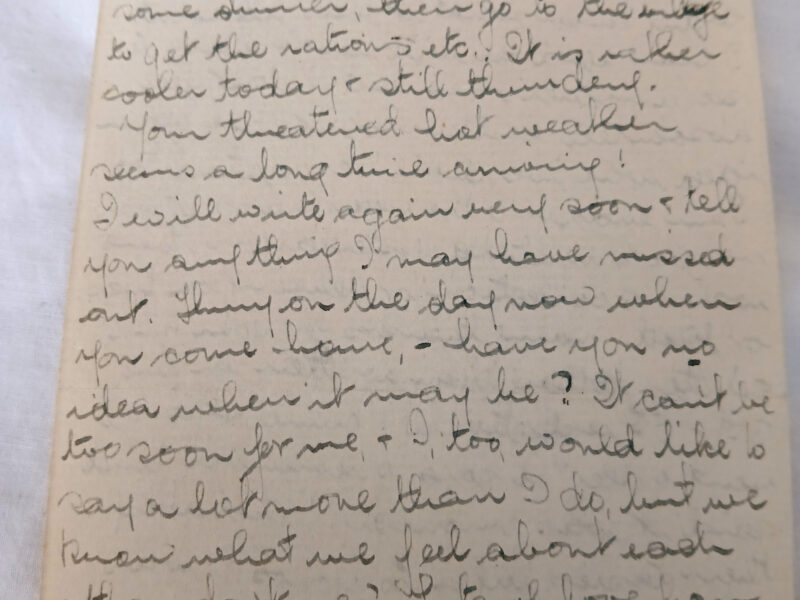 some dinner, then go to the village
to get the rations etc. It is rather
cooler today & still thundery.
Your threatened hot weather
seems a long time arriving!
I will write again very soon & tell
you anything I may have missed
out. Hurry on the day now when
you come home, - have you no
idea when it may be? It can't be
too soon for me, & I, too, would like to
say a lot more than I do, but we
know what we feel about each
other don't we?